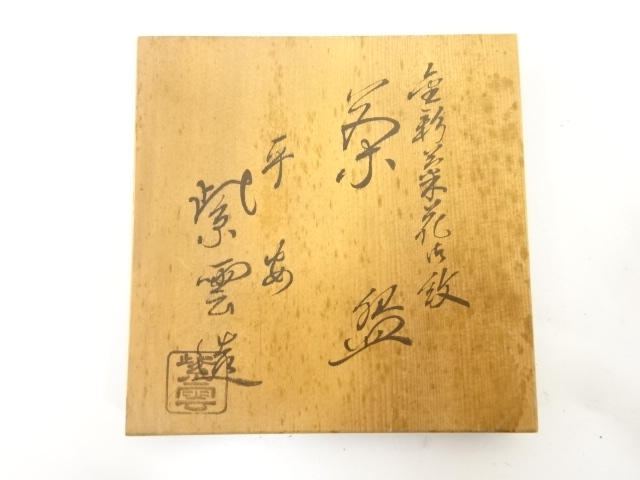 金彩菜花御紋
茶盌
平安
紫雲造
紫雲